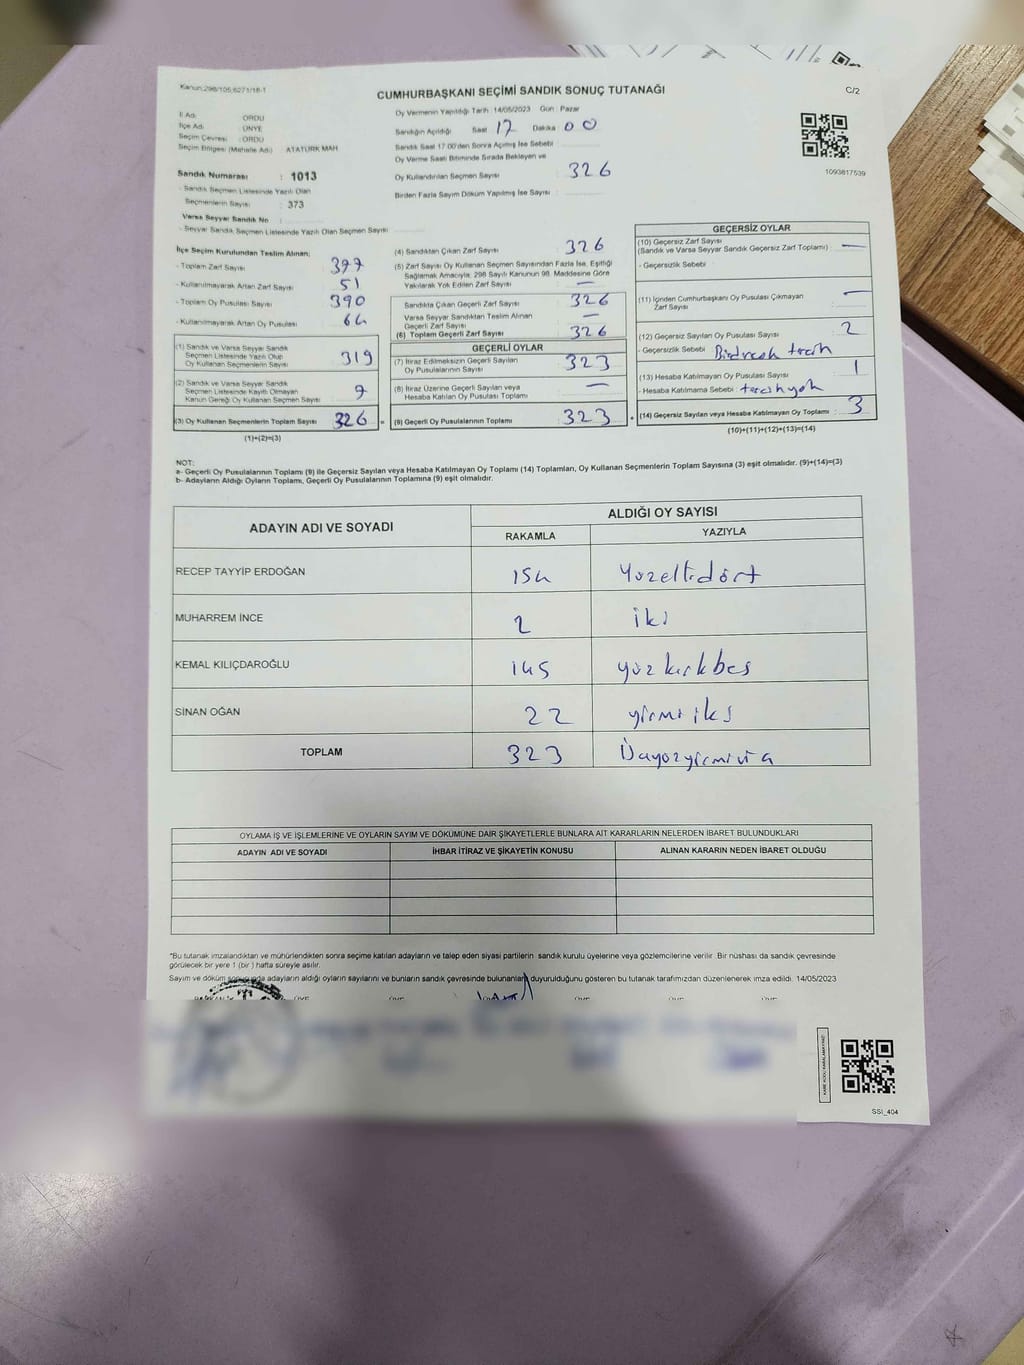 Kanun:298/105;6271/18-1
CUMHURBAŞKANI SEÇİMİ SANDIK SONUÇ TUTANAĞI
C/2
İl Adı : ORDU
İlçe Adı : ÜNYE
Seçim Çevresi : ORDU
Seçim Bölgesi (Mahalle Adı) ATATÜRK MAH
Sandık Numarası : 1013
- Sandık Seçmen Listesinde Yazılı Olan
Seçmenlerin Sayısı : 373
Varsa Seyyar Sandık No
- Seyyar Sandık Seçmen Listesinde Yazılı Olan Seçmen Sayısı
Oy Vermenin Yapıldığı Tarih : 14/05/2023 Gün : Pazar
Sandığın Açıldığı Saat 17 Dakika 00
Sandık Saat 17:00'den Sonra Açılmış İse Sebebi
Oy Verme Saati Bitiminde Sırada Bekleyen ve
Oy Kullandırılan Seçmen Sayısı : 326
Birden Fazla Sayım Döküm Yapılmış İse Sayısı
1093817539
İlçe Seçim Kurulundan Teslim Alınan;
- Toplam Zarf Sayısı : 397
- Kullanılmayarak Artan Zarf Sayısı : 51
- Toplam Oy Pusulası Sayısı : 390
- Kullanılmayarak Artan Oy Pusulası : 64
(1) Sandık ve Varsa Seyyar Sandık
Seçmen Listesinde Yazılı Olup
Oy Kullanan Seçmenlerin Sayısı 319
(2) Sandık ve Varsa Seyyar Sandık
Seçmen Listesinde Kayıtlı Olmayan
Kanun Gereği Oy Kullanan Seçmen Sayısı 7
(3) Oy Kullanan Seçmenlerin Toplam Sayısı 326
(1)+(2)=(3)
(4) Sandıktan Çıkan Zarf Sayısı : 326
(5) Zarf Sayısı Oy Kullanan Seçmen Sayısından Fazla İse, Eşitliği
Sağlamak Amacıyla; 298 Sayılı Kanunun 98. Maddesine Göre
Yakılarak Yok Edilen Zarf Sayısı : —
Sandıkta Çıkan Geçerli Zarf Sayısı : 326
Varsa Seyyar Sandıktan Teslim Alınan
Geçerli Zarf Sayısı : —
(6) Toplam Geçerli Zarf Sayısı : 326
GEÇERLİ OYLAR
(7) İtiraz Edilmeksizin Geçerli Sayılan
Oy Pusulalarının Sayısı : 323
(8) İtiraz Üzerine Geçerli Sayılan veya
Hesaba Katılan Oy Pusulaları Toplamı : —
= (9) Geçerli Oy Pusulalarının Toplamı : 323
GEÇERSİZ OYLAR
(10) Geçersiz Zarf Sayısı
(Sandık ve Varsa Seyyar Sandık Geçersiz Zarf Toplamı) : —
- Geçersizlik Sebebi :
(11) İçinden Cumhurbaşkanı Oy Pusulası Çıkmayan
Zarf Sayısı : —
(12) Geçersiz Sayılan Oy Pusulası Sayısı : 2
- Geçersizlik Sebebi :
(13) Hesaba Katılmayan Oy Pusulası Sayısı : 1
- Hesaba Katılmama Sebebi : tercih yok
+ (14) Geçersiz Sayılan veya Hesaba Katılmayan Oy Toplamı : 3
(10)+(11)+(12)+(13)=(14)
NOT:
a- Geçerli Oy Pusulalarının Toplamı (9) ile Geçersiz Sayılan veya Hesaba Katılmayan Oy Toplamı (14) Toplamları, Oy Kullanan Seçmenlerin Toplam Sayısına (3) eşit olmalıdır. (9)+(14)=(3)
b- Adayların Aldığı Oyların Toplamı, Geçerli Oy Pusulalarının Toplamına (9) eşit olmalıdır.
ADAYIN ADI VE SOYADI
ALDIĞI OY SAYISI
RAKAMLA YAZIYLA
RECEP TAYYİP ERDOĞAN 154 Yüzellidört
MUHARREM İNCE 2 iki
KEMAL KILIÇDAROĞLU 145 yüzkırkbeş
SİNAN OĞAN 22 yirmiiki
TOPLAM 323
OYLAMA İŞ VE İŞLEMLERİNE VE OYLARIN SAYIM VE DÖKÜMÜNE DAİR ŞİKAYETLERLE BUNLARA AİT KARARLARIN NELERDEN İBARET BULUNDUKLARI
ADAYIN ADI VE SOYADI İHBAR İTİRAZ VE ŞİKAYETİN KONUSU ALINAN KARARIN NEDEN İBARET OLDUĞU
*Bu tutanak imzalandıktan ve mühürlendikten sonra seçime katılan adayların ve talep eden siyasi partilerin sandık kurulu üyelerine veya gözlemcilerine verilir. Bir nüshası da sandık çevresinde
görülecek bir yere 1 (bir) hafta süreyle asılır.
Sayım ve döküm sonucunda adayların aldığı oyların sayılarını ve bunların sandık çevresinde bulunanlara duyurulduğunu gösteren bu tutanak tarafımızdan düzenlenerek imza edildi. 14/05/2023
SSI_404